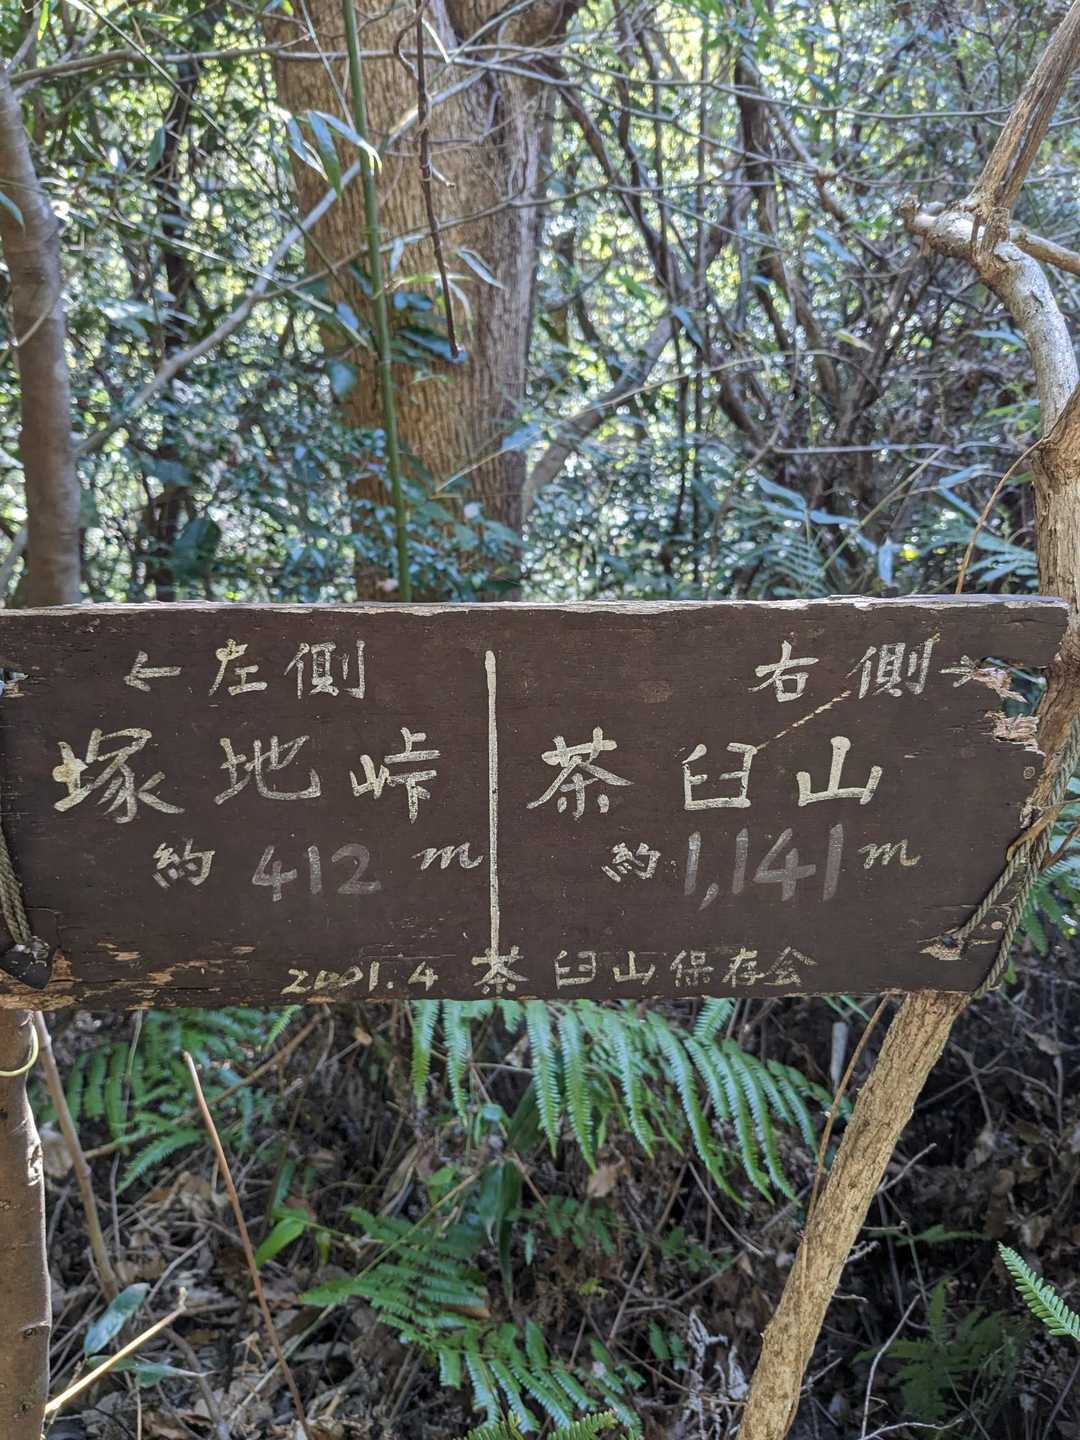 ← 左側
塚地峠
約 412 m
右側 →
茶臼山
約 1,141 m
2001.4 茶臼山保存会